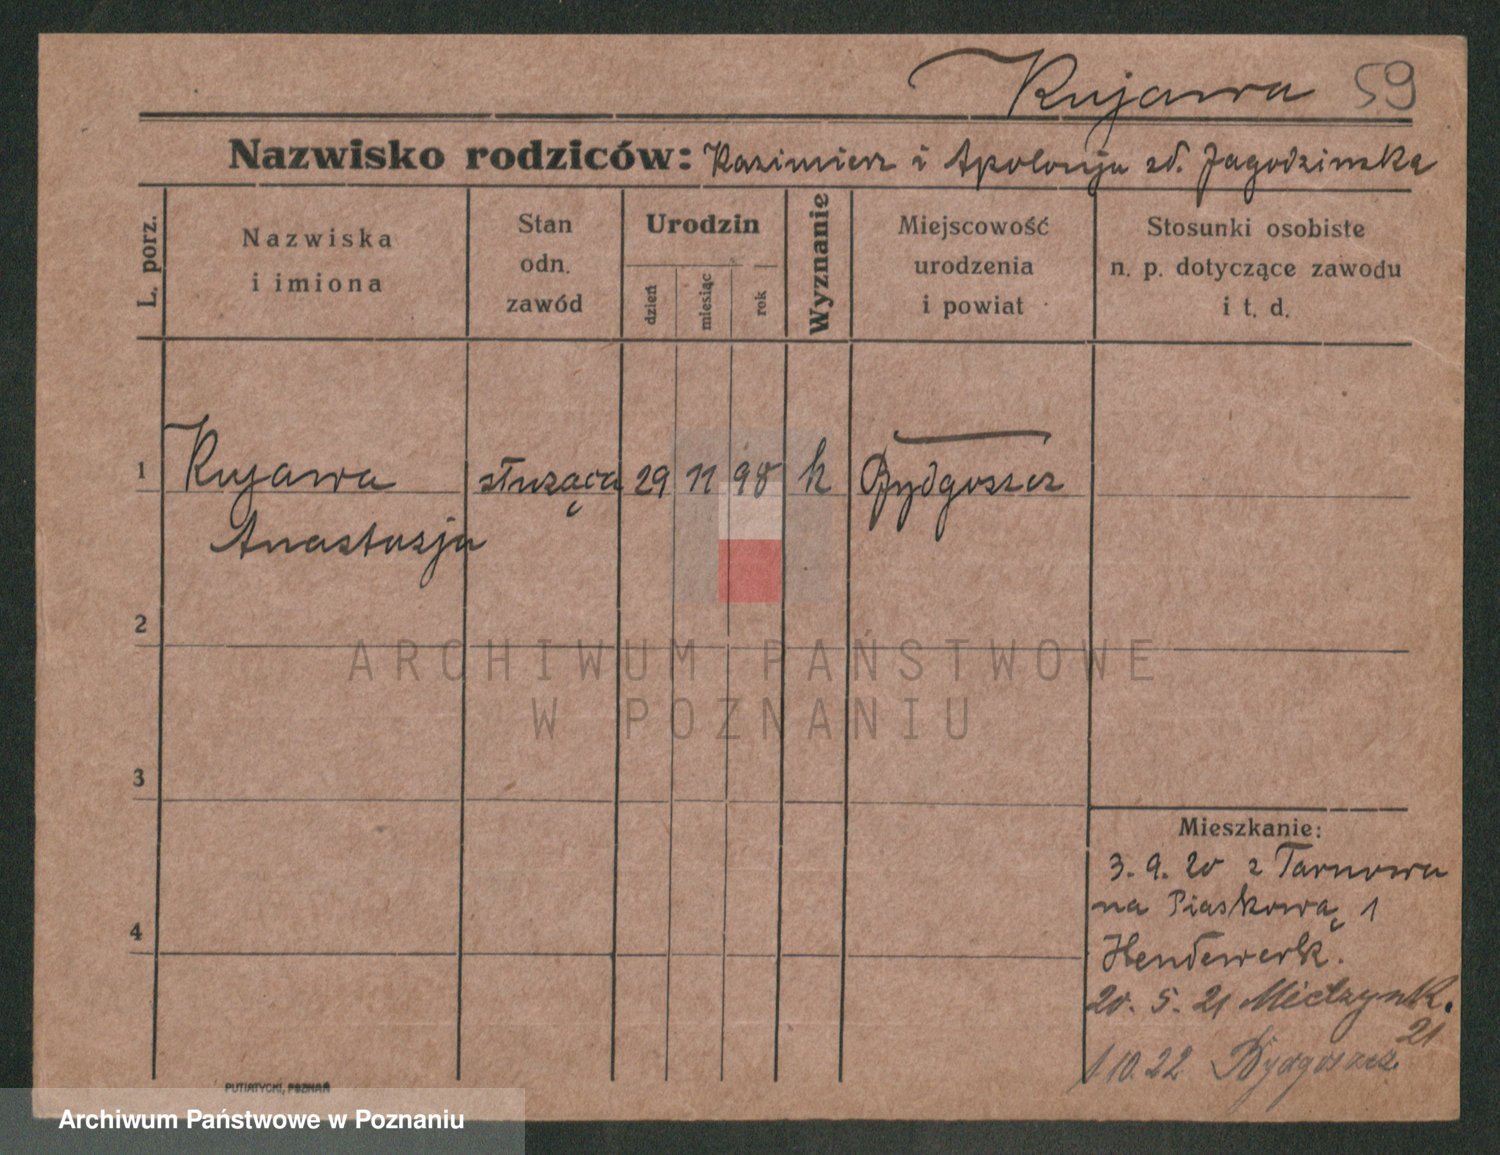 Kujawa 59
Nazwisko rodziców: Kazimierz i Apolonja zd. Jagodzinska
L. porz.
Nazwiska
i imiona
Stan
odn.
zawód
Urodzin
dzień
miesiąc
rok
Wyznanie
Miejscowość
urodzenia
i powiat
Stosunki osobiste
n. p. dotyczące zawodu
i t. d.
1 Kujawa służąca 29 11 98 k Bydgoszcz
Anastazja
2
ARCHIWUM PAŃSTWOWE
W POZNANIU
3
Mieszkanie:
3. 9. 20 z Tarnowa
na Piaskową 1
4
20. 5. 21
21
1 10. 22 Bydgoszcz
PUTIATYCKI, POZNAŃ
Archiwum Państwowe w Poznaniu